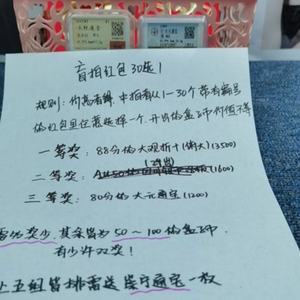 盲拍红包30选1
规则：价高者得，中拍者从1-30个带有编号
的红包里任意选择一个，开出的盒子币价值不等
一等奖：88分的大观折十(3500)
二等奖：(1600)
三等奖：80分的大元通宝(1200)
奖少，其余皆为50～100的盒子币
有少许双奖！
上五组皆排需送崇宁通宝一枚